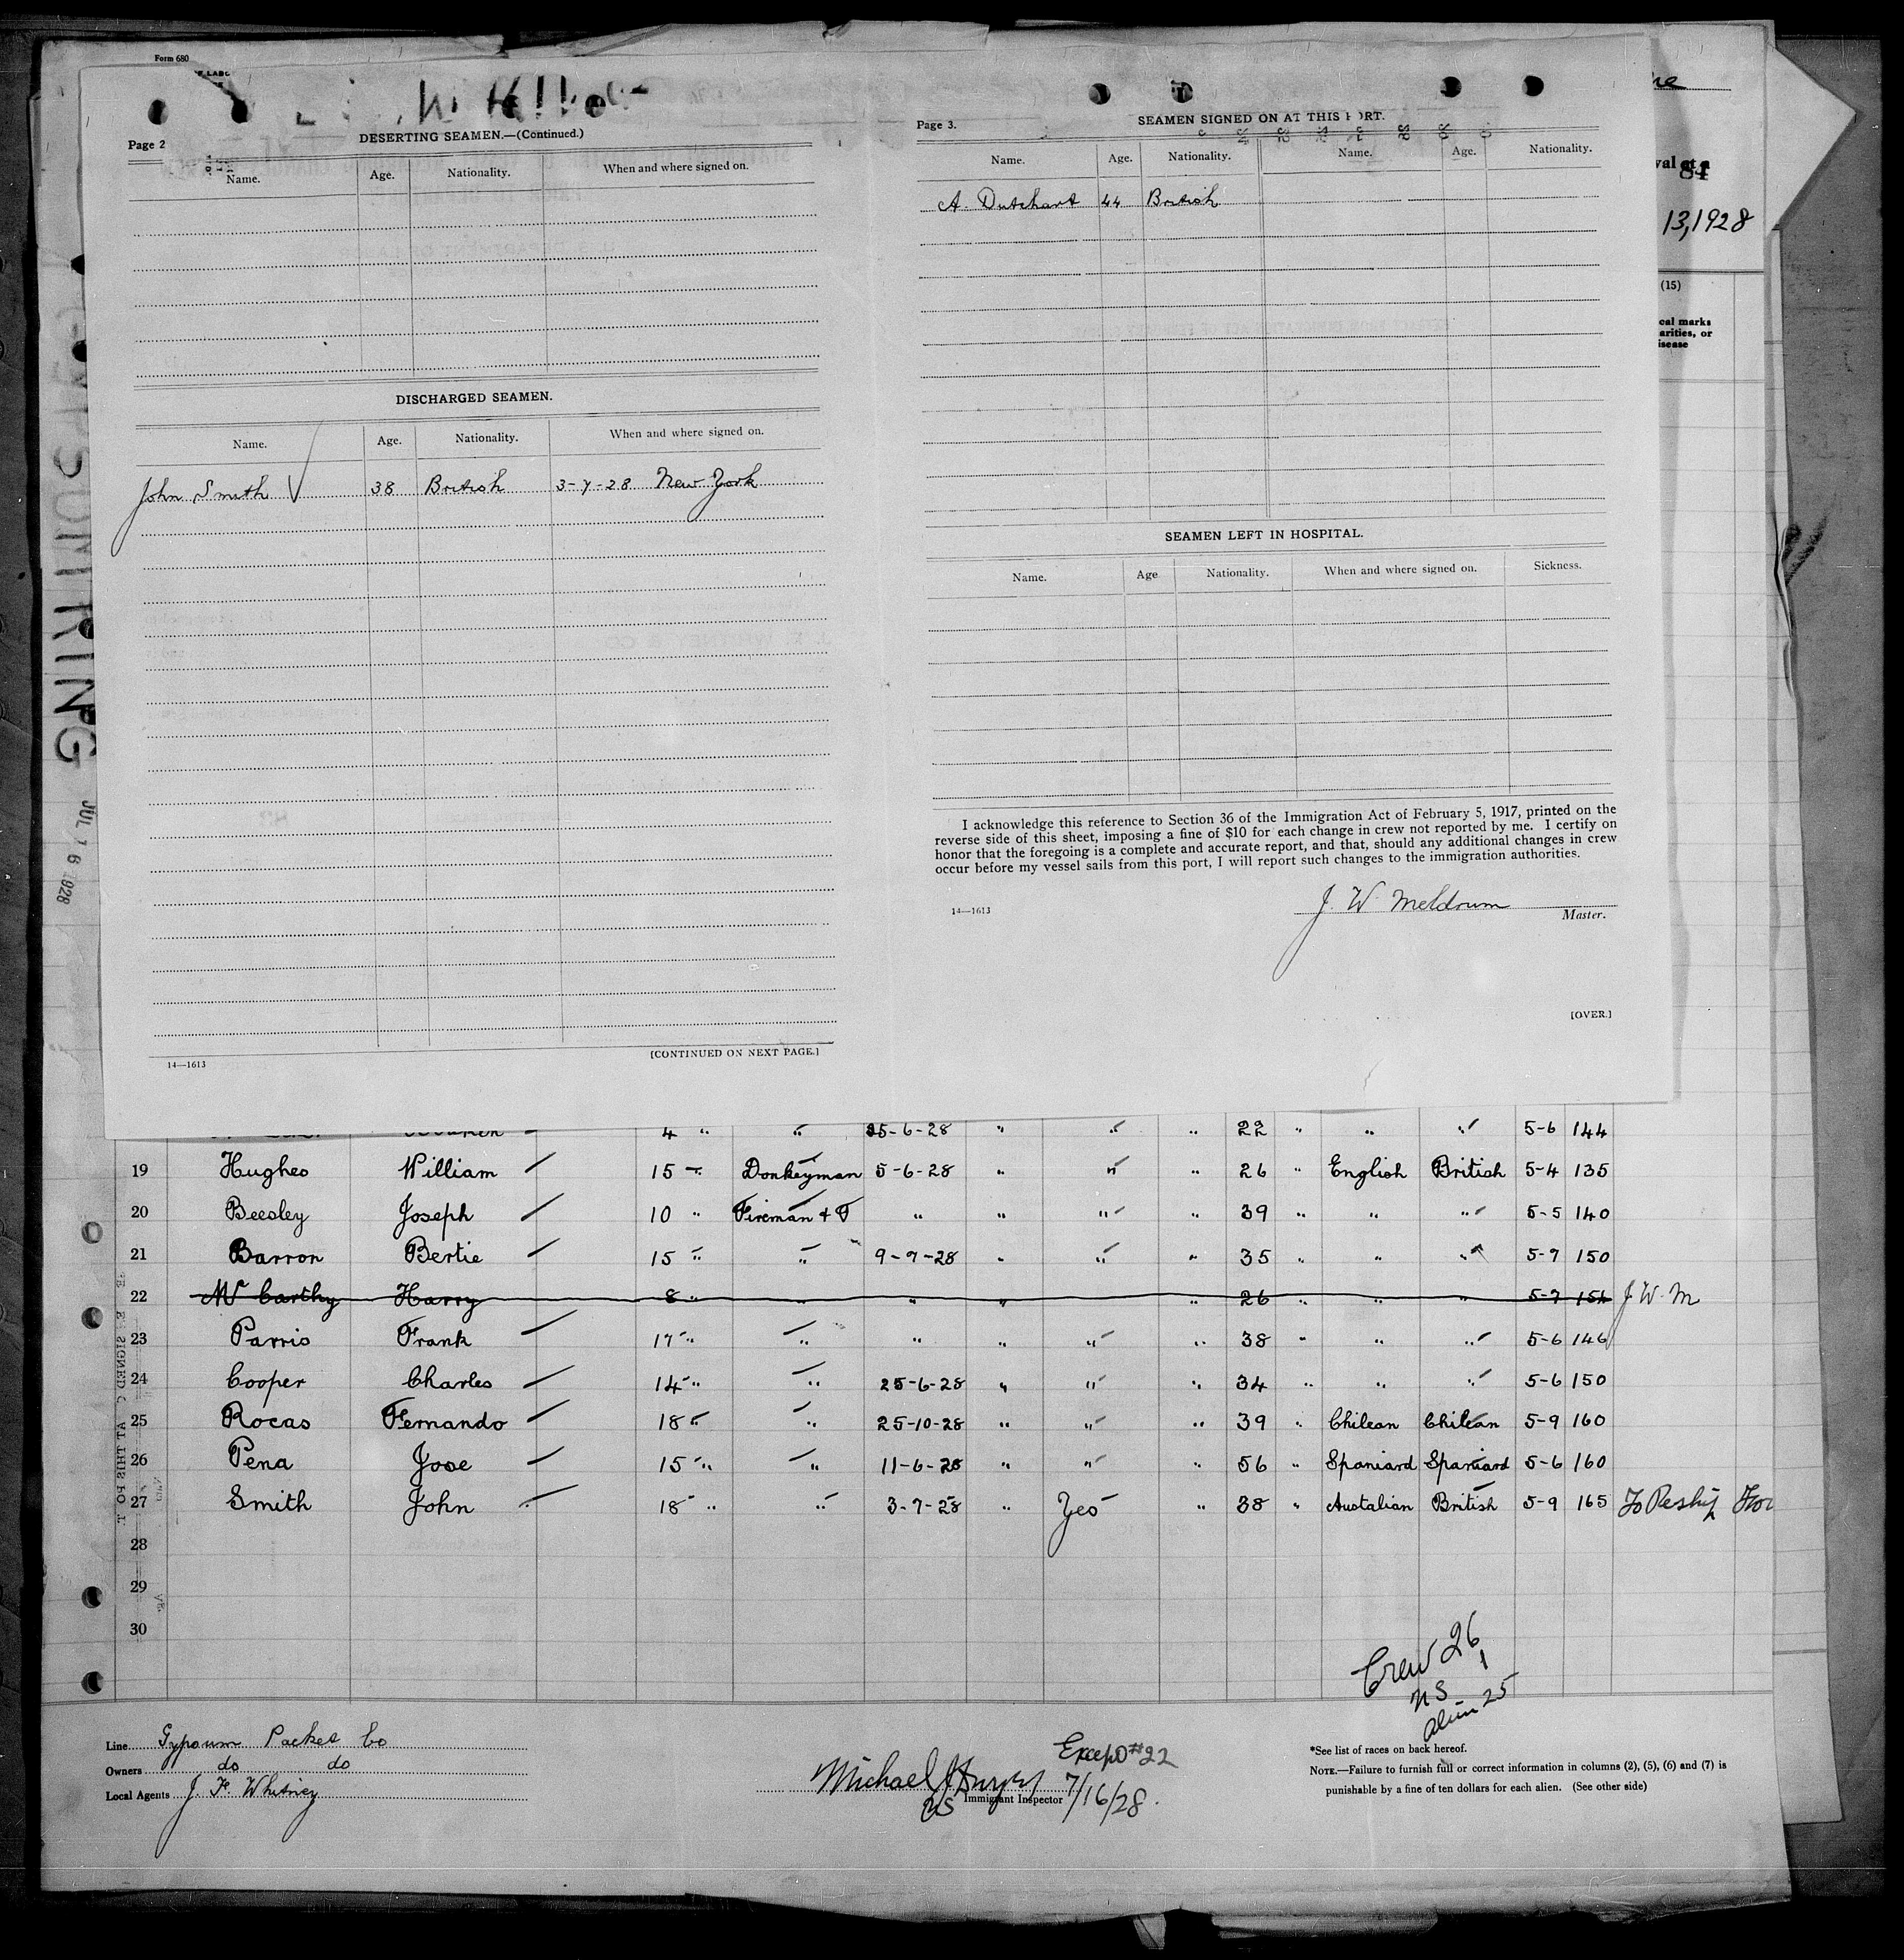 Form 680
Page 2
DESERTING SEAMEN.—(Continued.)
Name. Age. Nationality. When and where signed on.
DISCHARGED SEAMEN.
Name. Age. Nationality. When and where signed on.
John Smith 38 British 3-7-28 New York
14—1613
[CONTINUED ON NEXT PAGE.]
Page 3.
SEAMEN SIGNED ON AT THIS PORT.
Name. Age. Nationality. Name. Age. Nationality.
A. Dutchart 44 British
SEAMEN LEFT IN HOSPITAL.
Name. Age Nationality. When and where signed on. Sickness.
I acknowledge this reference to Section 36 of the Immigration Act of February 5, 1917, printed on the
reverse side of this sheet, imposing a fine of $10 for each change in crew not reported by me. I certify on
honor that the foregoing is a complete and accurate report, and that, should any additional changes in crew
occur before my vessel sails from this port, I will report such changes to the immigration authorities.
J. W. Meldrum
14—1613
Master.
[OVER.]
84
13, 1928
(15)
cal marks
arities, or
isease
JUL 16 1928
4 " " 25-6-28 " " " 22 " " " 5-6 144
19 Hughes William 15 " Donkeyman 5-6-28 " " " 26 " English British 5-4 135
20 Beesley Joseph 10 " Fireman & T " " " " 39 " " " 5-5 140
21 Barron Bertie 15 " " 9-7-28 " " " 35 " " " 5-7 150
22 McCarthy Harry 8 " " " " " 26 " " " 5-7 154 J. W. M
23 Parris Frank 17 " " " " " " 38 " " " 5-6 146
24 Cooper Charles 14 " " 25-6-28 " " " 34 " " " 5-6 150
25 Rocas Fernando 18 " " 25-10-28 " " " 39 " Chilean Chilean 5-9 160
26 Pena Jose 15 " " 11-6-28 " " " 56 " Spaniard Spaniard 5-6 160
27 Smith John 18 " " 3-7-28 " Yes " 38 " Austalian British 5-9 165
28
29
30
Crew 26
US 1
Alien 25
Line Gypsum Packet Co
Owners do do
Local Agents J. F. Whitney
Except #22
Michael
US Immigrant Inspector 7/16/28.
*See list of races on back hereof.
NOTE.—Failure to furnish full or correct information in columns (2), (5), (6) and (7) is
punishable by a fine of ten dollars for each alien. (See other side)